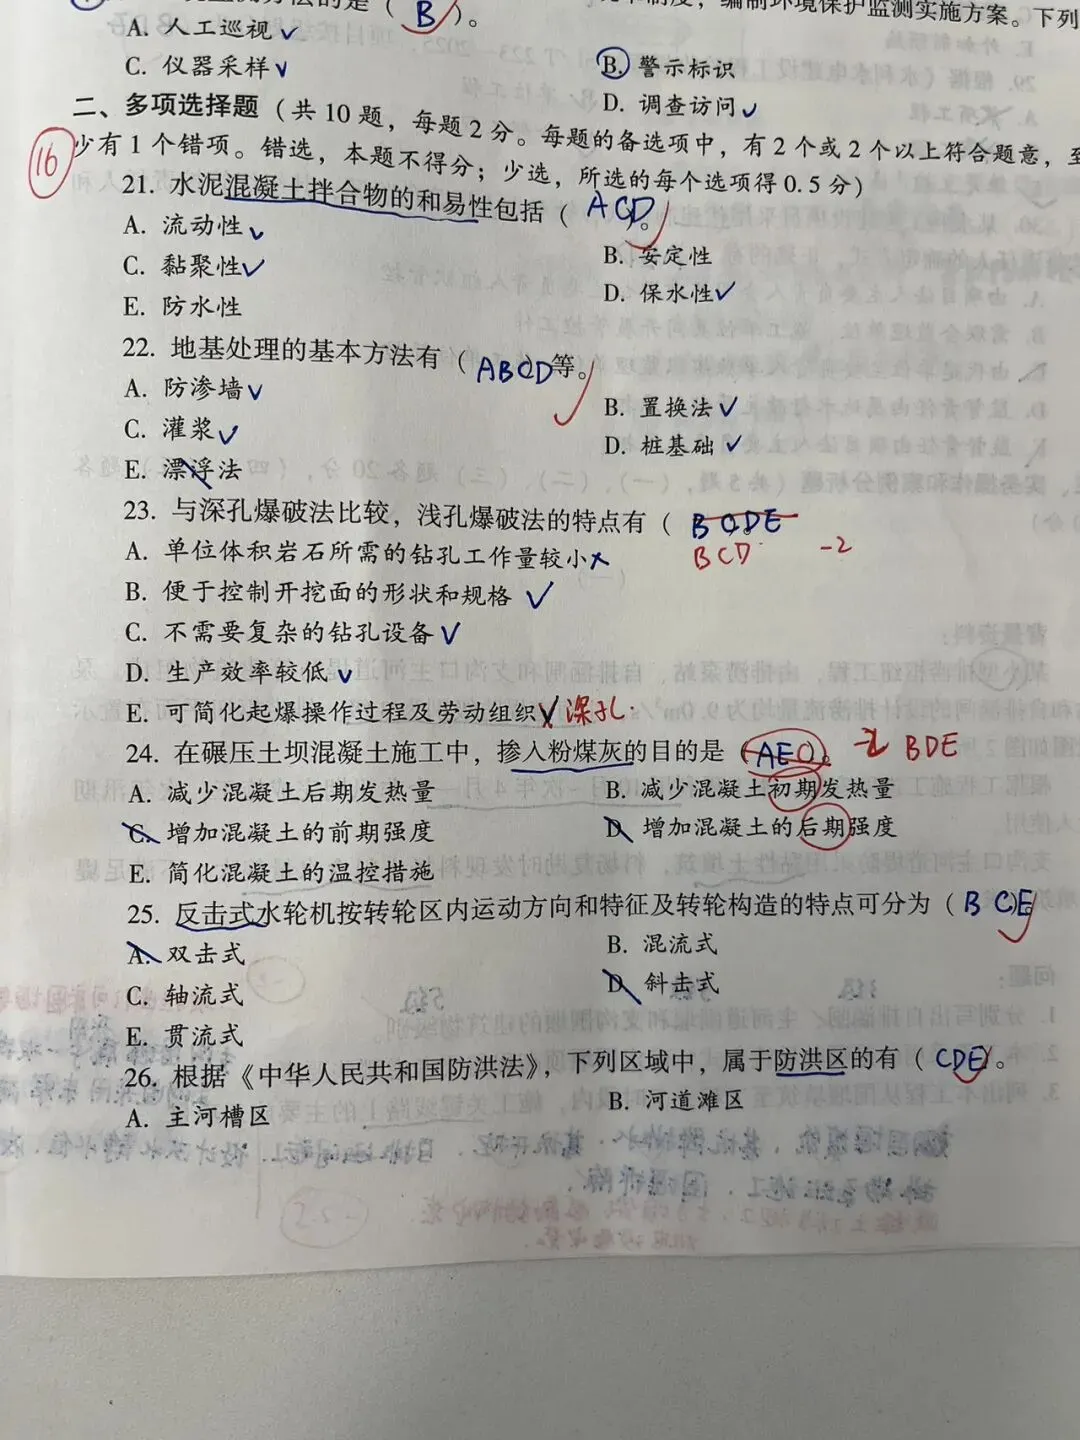 的是( B )。
A. 人工巡视 ✓
编制环境保护监测实施方案。下列
C. 仪器采样 ✓
B. 警示标识
D. 调查访问 ✓
二、多项选择题(共10题,每题2分。每题的备选项中,有2个或2个以上符合题意,至
少有1个错项。错选,本题不得分;少选,所选的每个选项得0.5分)
16
21. 水泥混凝土拌合物的和易性包括( ACD )。
A. 流动性 ✓
B. 安定性
C. 黏聚性 ✓
D. 保水性 ✓
E. 防水性
22. 地基处理的基本方法有( ABCD )等。
A. 防渗墙 ✓
B. 置换法 ✓
C. 灌浆 ✓
D. 桩基础 ✓
E. 漂浮法
23. 与深孔爆破法比较,浅孔爆破法的特点有( BCDE )。
BCD -2
A. 单位体积岩石所需的钻孔工作量较小 ×
B. 便于控制开挖面的形状和规格 ✓
C. 不需要复杂的钻孔设备 ✓
D. 生产效率较低 ✓
E. 可简化起爆操作过程及劳动组织 × 深孔.
24. 在碾压土坝混凝土施工中,掺入粉煤灰的目的是( AE )。 -2 BDE
A. 减少混凝土后期发热量
B. 减少混凝土初期发热量
C. 增加混凝土的前期强度
D. 增加混凝土的后期强度
E. 简化混凝土的温控措施
25. 反击式水轮机按转轮区内运动方向和特征及转轮构造的特点可分为( BCE )。
A. 双击式
B. 混流式
C. 轴流式
D. 斜击式
E. 贯流式
26. 根据《中华人民共和国防洪法》,下列区域中,属于防洪区的有( CDE )。
A. 主河槽区
B. 河道滩区